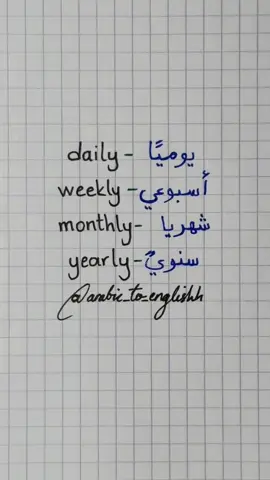 daily - يوميًا
weekly - أسبوعي
monthly- شهريا
yearly - سنويٌ
@arabic_to_englishh